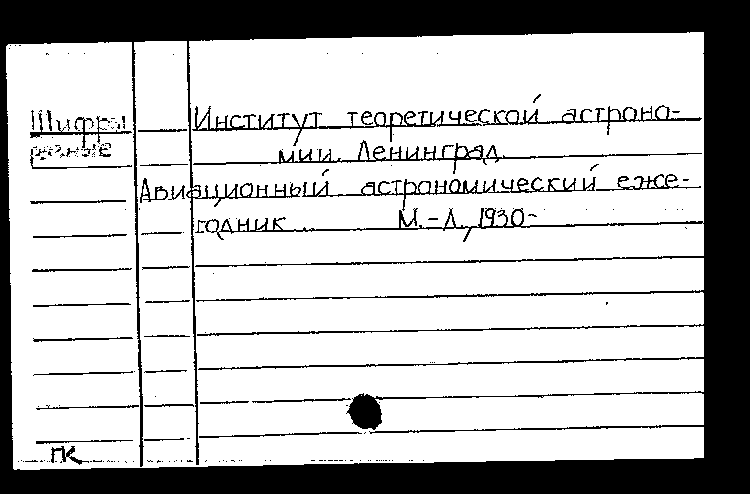 Шифры
разные
Институт теоретической астроно-
мии. Ленинград.
Авиационный астрономический еже-
годник. М.-Л., 1930-
ГК